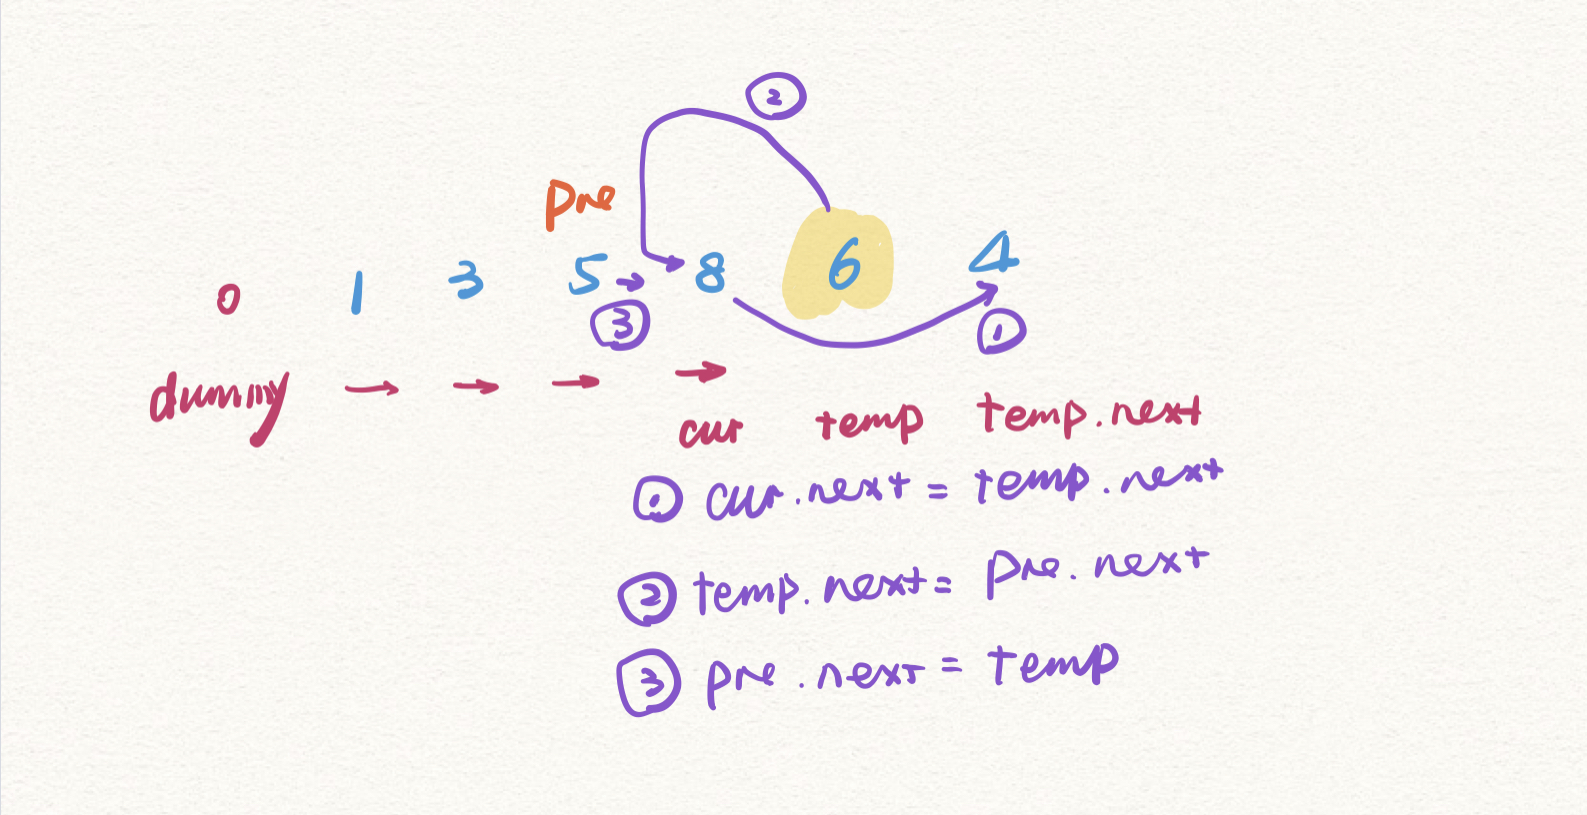 2
pre
0 1 3 5 8 6 4
3 1
dummy
cur temp temp.next
1 cur.next = temp.next
2 temp.next = pre.next
3 pre.next = temp